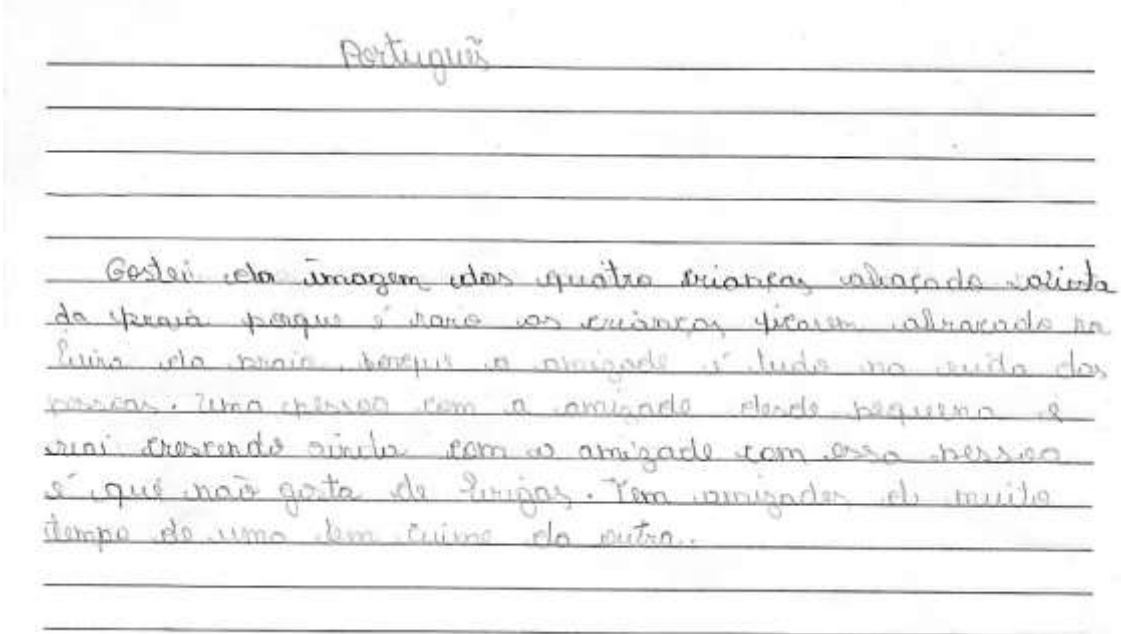 Português
Gostei da imagem das quatro crianças abraçada
da praia porque é raro as crianças ficarem abraçada na
beira da praia, porque a amizade é tudo na vida das
pessoas. Uma pessoa com a amizade desde pequena e
vai crescendo ainda com a amizade com essa pessoa
é que não gosta de brigas. Tem amizades de muito
tempo de uma tem ciúme da outra.